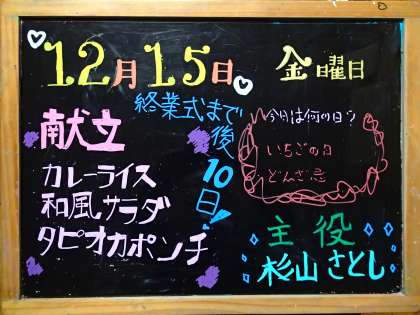 12月15日
金曜日
終業式まで
後10日!
今日は何の日?
いちごの日
どんざ忌
献立
カレーライス
和風サラダ
タピオカポンチ
主役
杉山さとし